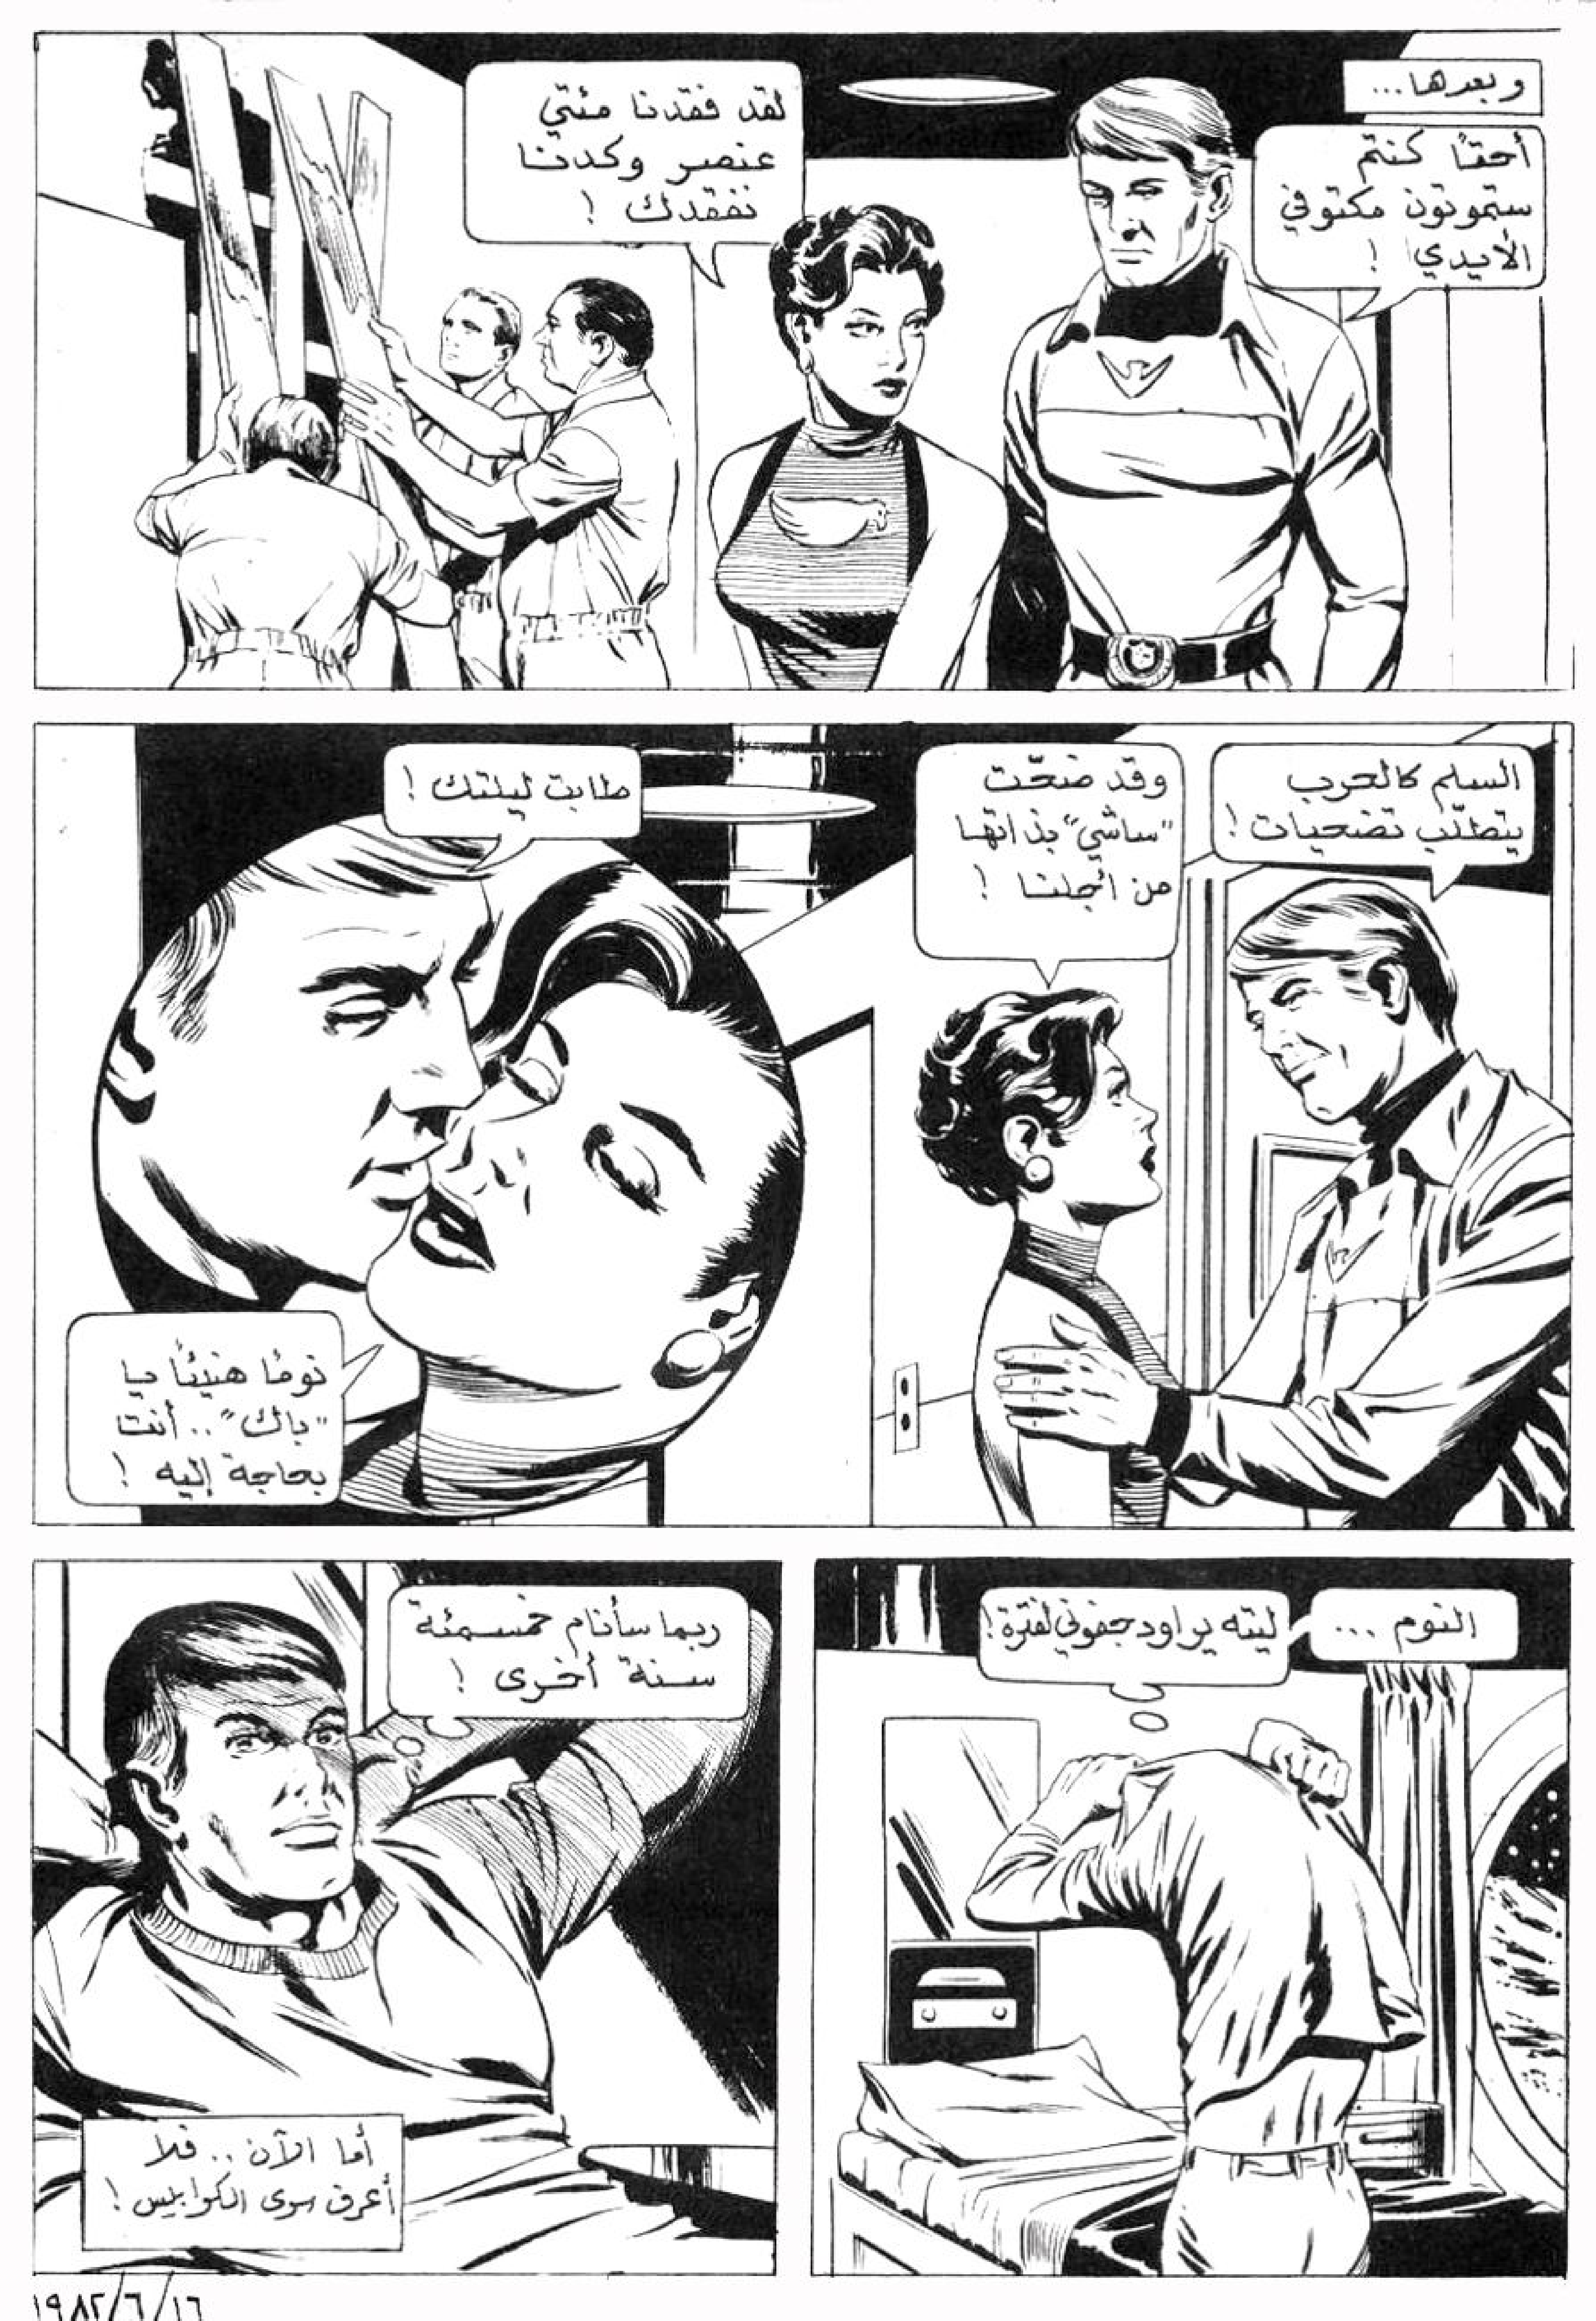 وبعدها...
أحقًا كنتم
ستموتون مكتوفي
الأيدي !
لقد فقدنا مئتي
عنصر وكدنا
نفقدك !
السلم كالحرب
يتطلّب تضحيات !
وقد ضحّت
"ساشي" بذاتها
من أجلنا !
طابت ليلتك !
نومًا هنيئًا يا
"باك".. أنت
بحاجة إليه !
النوم ...
ليته يراود جفوني لفترة !
ربما سأنام خمسمئة
سنة أخرى !
أما الآن .. فلا
أعرف سوى الكوابيس !
١٩٨٢/٦/١٦